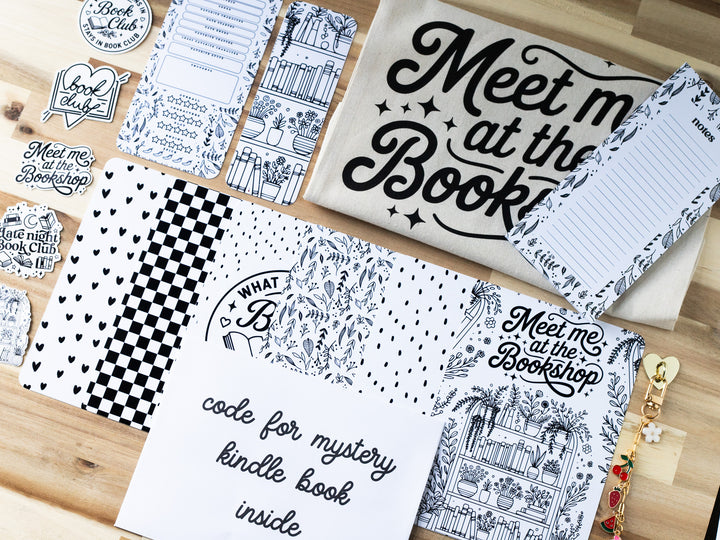 Book
Club
STAYS IN BOOK CLUB
book
club
Meet me
at the
Bookshop
Late night
Book Club
Meet m
at the
Books
notes
WHAT
B
Meet me
at the
Bookshop
code for mystery
kindle book
inside